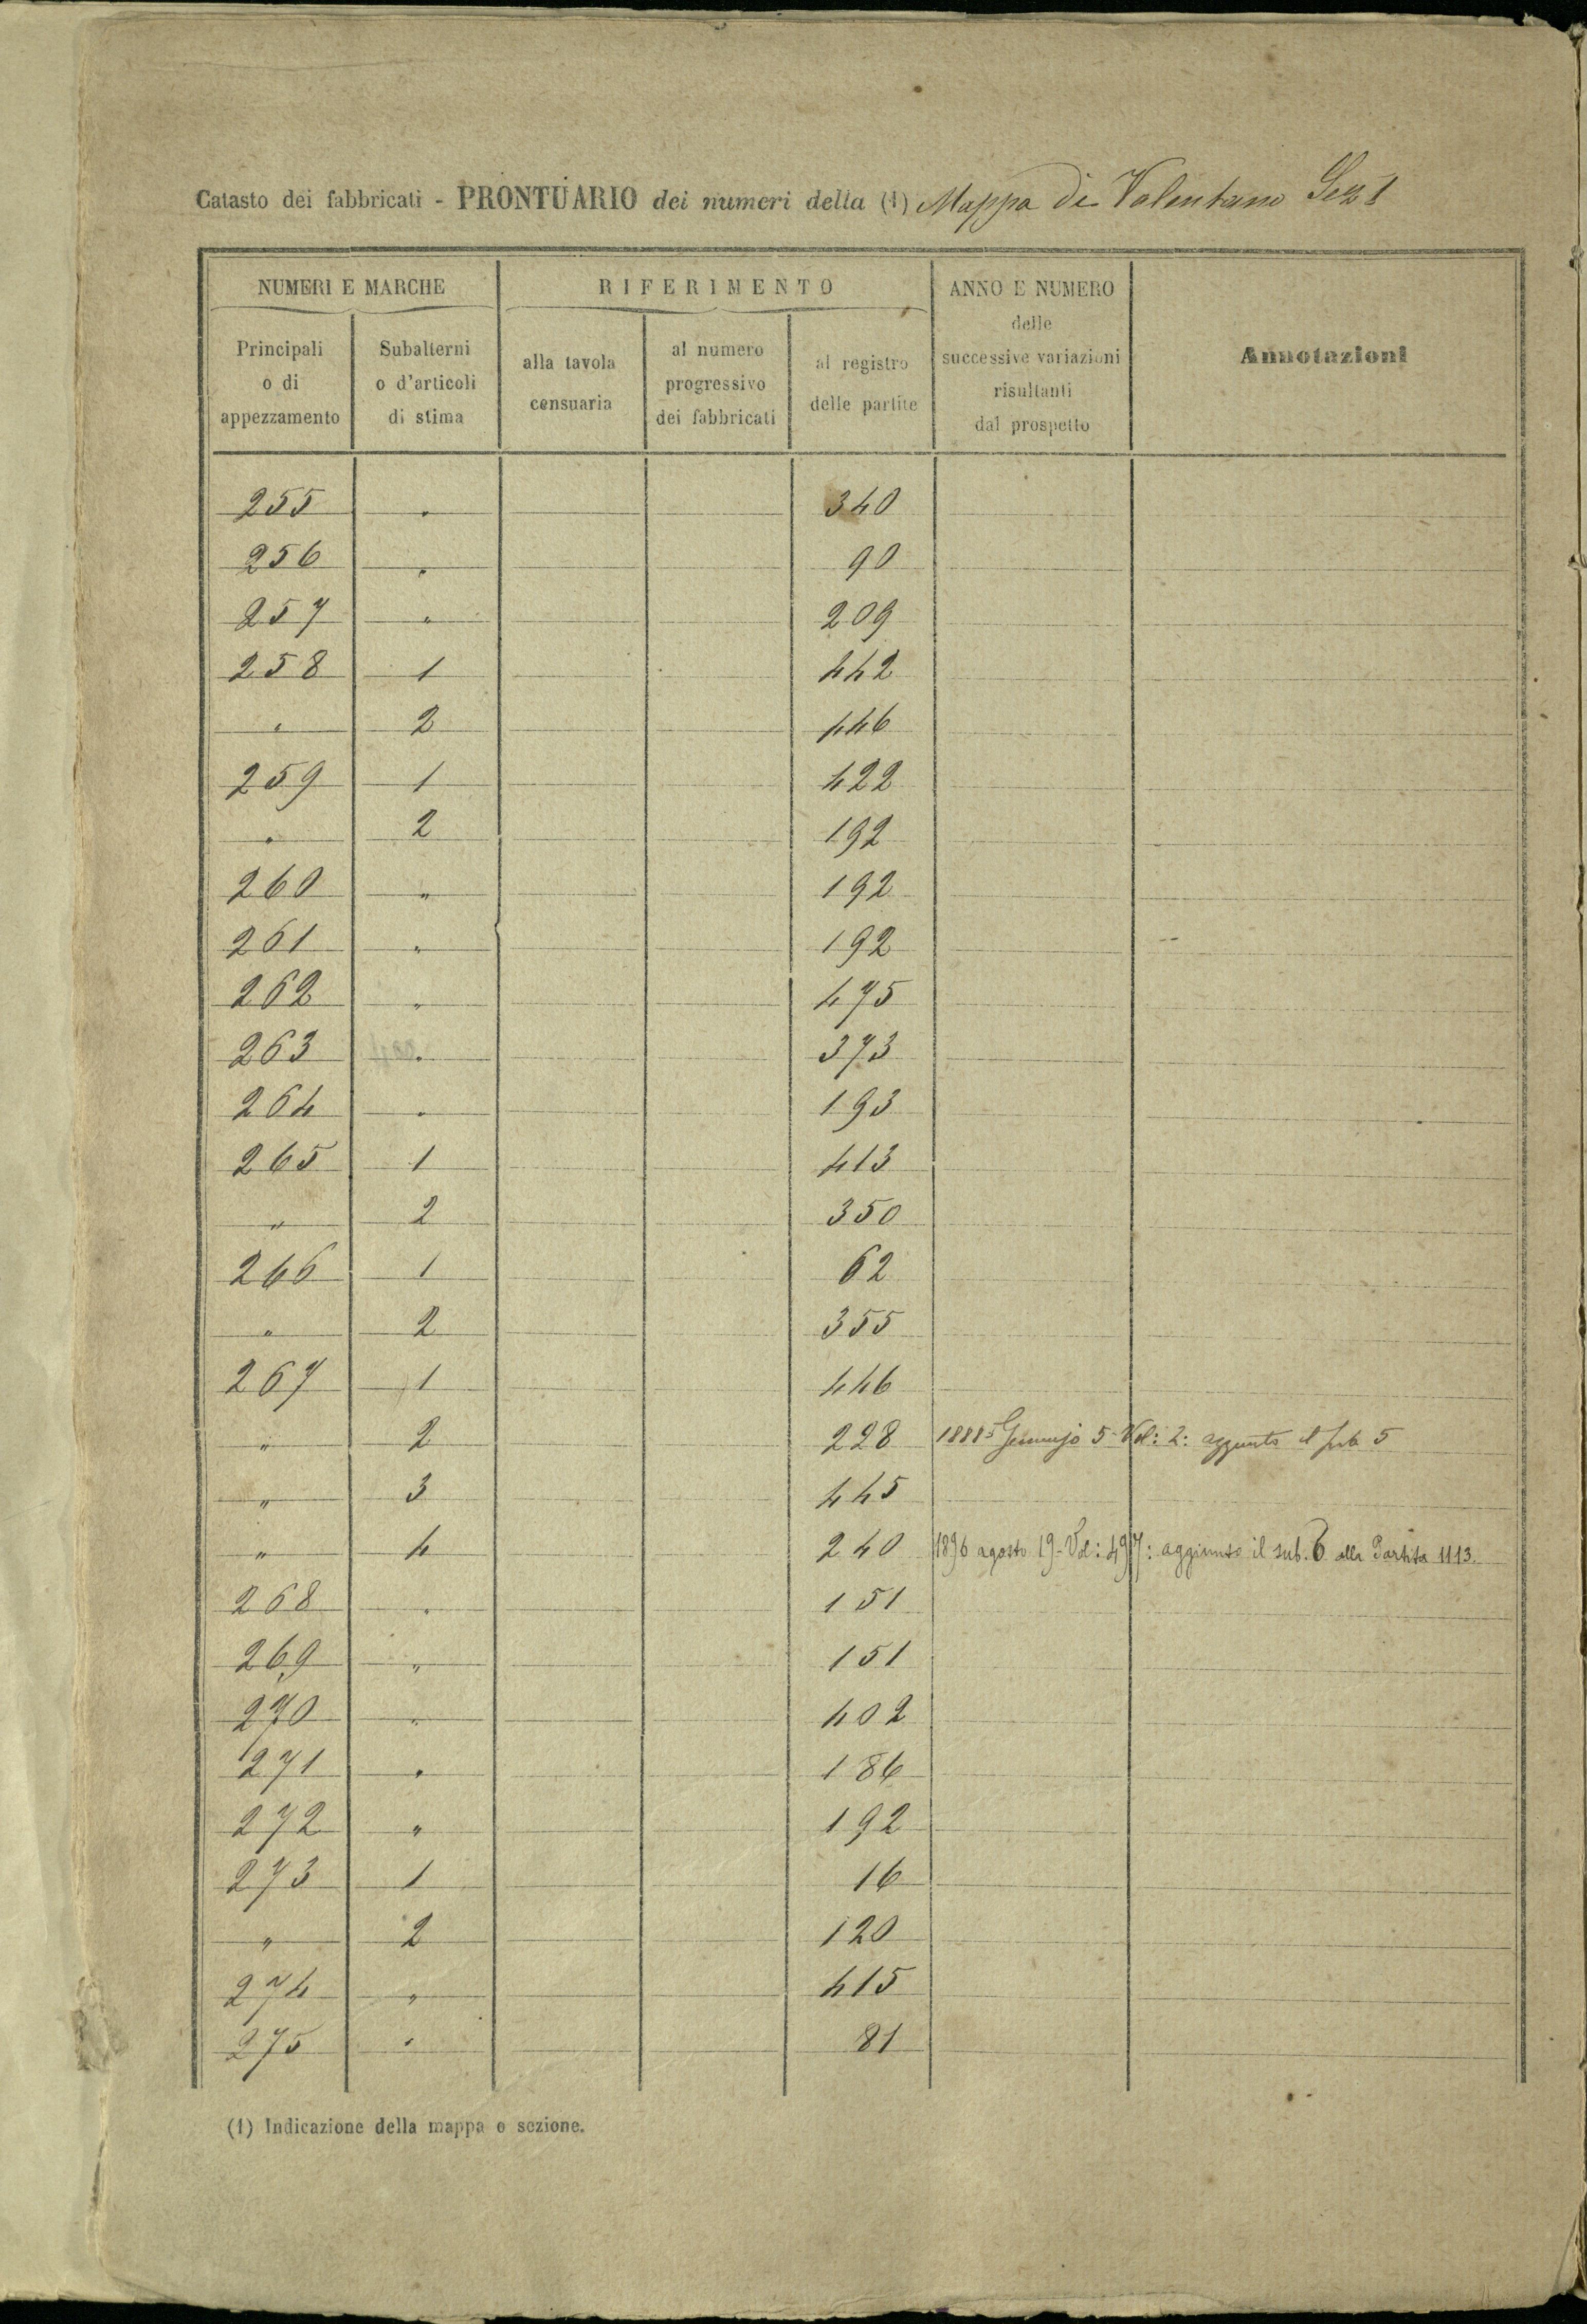 Catasto dei fabbricati - PRONTUARIO dei numeri della (1) Mappa di Valentano Sez 1
NUMERI E MARCHE RIFERIMENTO ANNO E NUMERO delle successive variazioni risultanti dal prospetto Annotazioni
Principali o di appezzamento Subalterni o d'articoli di stima alla tavola censuaria al numero progressivo dei fabbricati al registro delle partite
255 " 340
256 " 90
257 " 209
258 1 442
" 2 446
259 1 422
" 2 192
260 " 192
261 " 192
262 " 475
263 " 373
264 " 193
265 1 413
" 2 350
266 1 62
" 2 355
267 1 446
" 2 228 Gennajo 5 Vol: 2: aggiunto il sub 5
" 3 445
" 4 240 1896 agosto 19 - Vol: 497: aggiunto il sub. 6 alla Partita 1113.
268 " 151
269 " 151
270 " 402
271 " 186
272 " 192
273 1 16
" 2 120
274 " 415
275 " 81
(1) Indicazione della mappa o sezione.